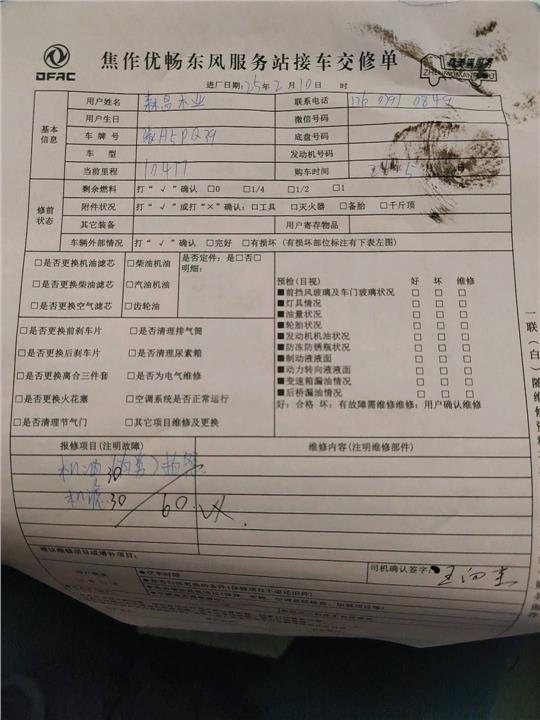 DFAC
焦作优畅东风服务站接车交修单
进厂日期:25年2月10日 时
基本信息
用户姓名 森昌木业 联系电话
用户生日 微信号码
车牌号 豫H5PQ39 底盘号码
车型 发动机号码
当前里程 17477 购车时间
修前状态
剩余燃料 打"√"确认 □0 □1/4 □1/2 □1
附件状况 打"√"或打"×"确认:□工具 □灭火器 □备胎 □千斤顶
其它装备 用户寄存物品
车辆外部情况 打"√"确认 □完好 □有损坏(有损坏部位标注有下表左图)
□是否更换机油滤芯 □柴油机油 是否定件:是□否□
明细:
□是否更换柴油滤芯 □汽油机油
□是否更换空气滤芯 □齿轮油
预检(目视) 好 坏 维修
■前挡风玻璃及车门玻璃状况 □ □ □
■灯具情况 □ □ □
■油量状况 □ □ □
■轮胎状况 □ □ □
■发动机机油状况 □ □ □
■防冻防锈瓶状况 □ □ □
■制动液液面 □ □ □
■动力转向液液面 □ □ □
■变速箱漏油情况 □ □ □
■后桥漏油情况 □ □ □
好:合格 坏:有故障需维修维修:用户确认维修
□是否更换前刹车片 □是否清理排气筒
□是否更换后刹车片 □是否清理尿素箱
□是否更换离合三件套 □是否为电气维修
□是否更换火花塞 □空调系统是否正常运行
□是否清理节气门 □其它项目维修及更换
报修项目(注明故障) 维修内容(注明维修部件)
机油 30
机滤 30
60
建议维修项目或增补项目:
司机确认签字: